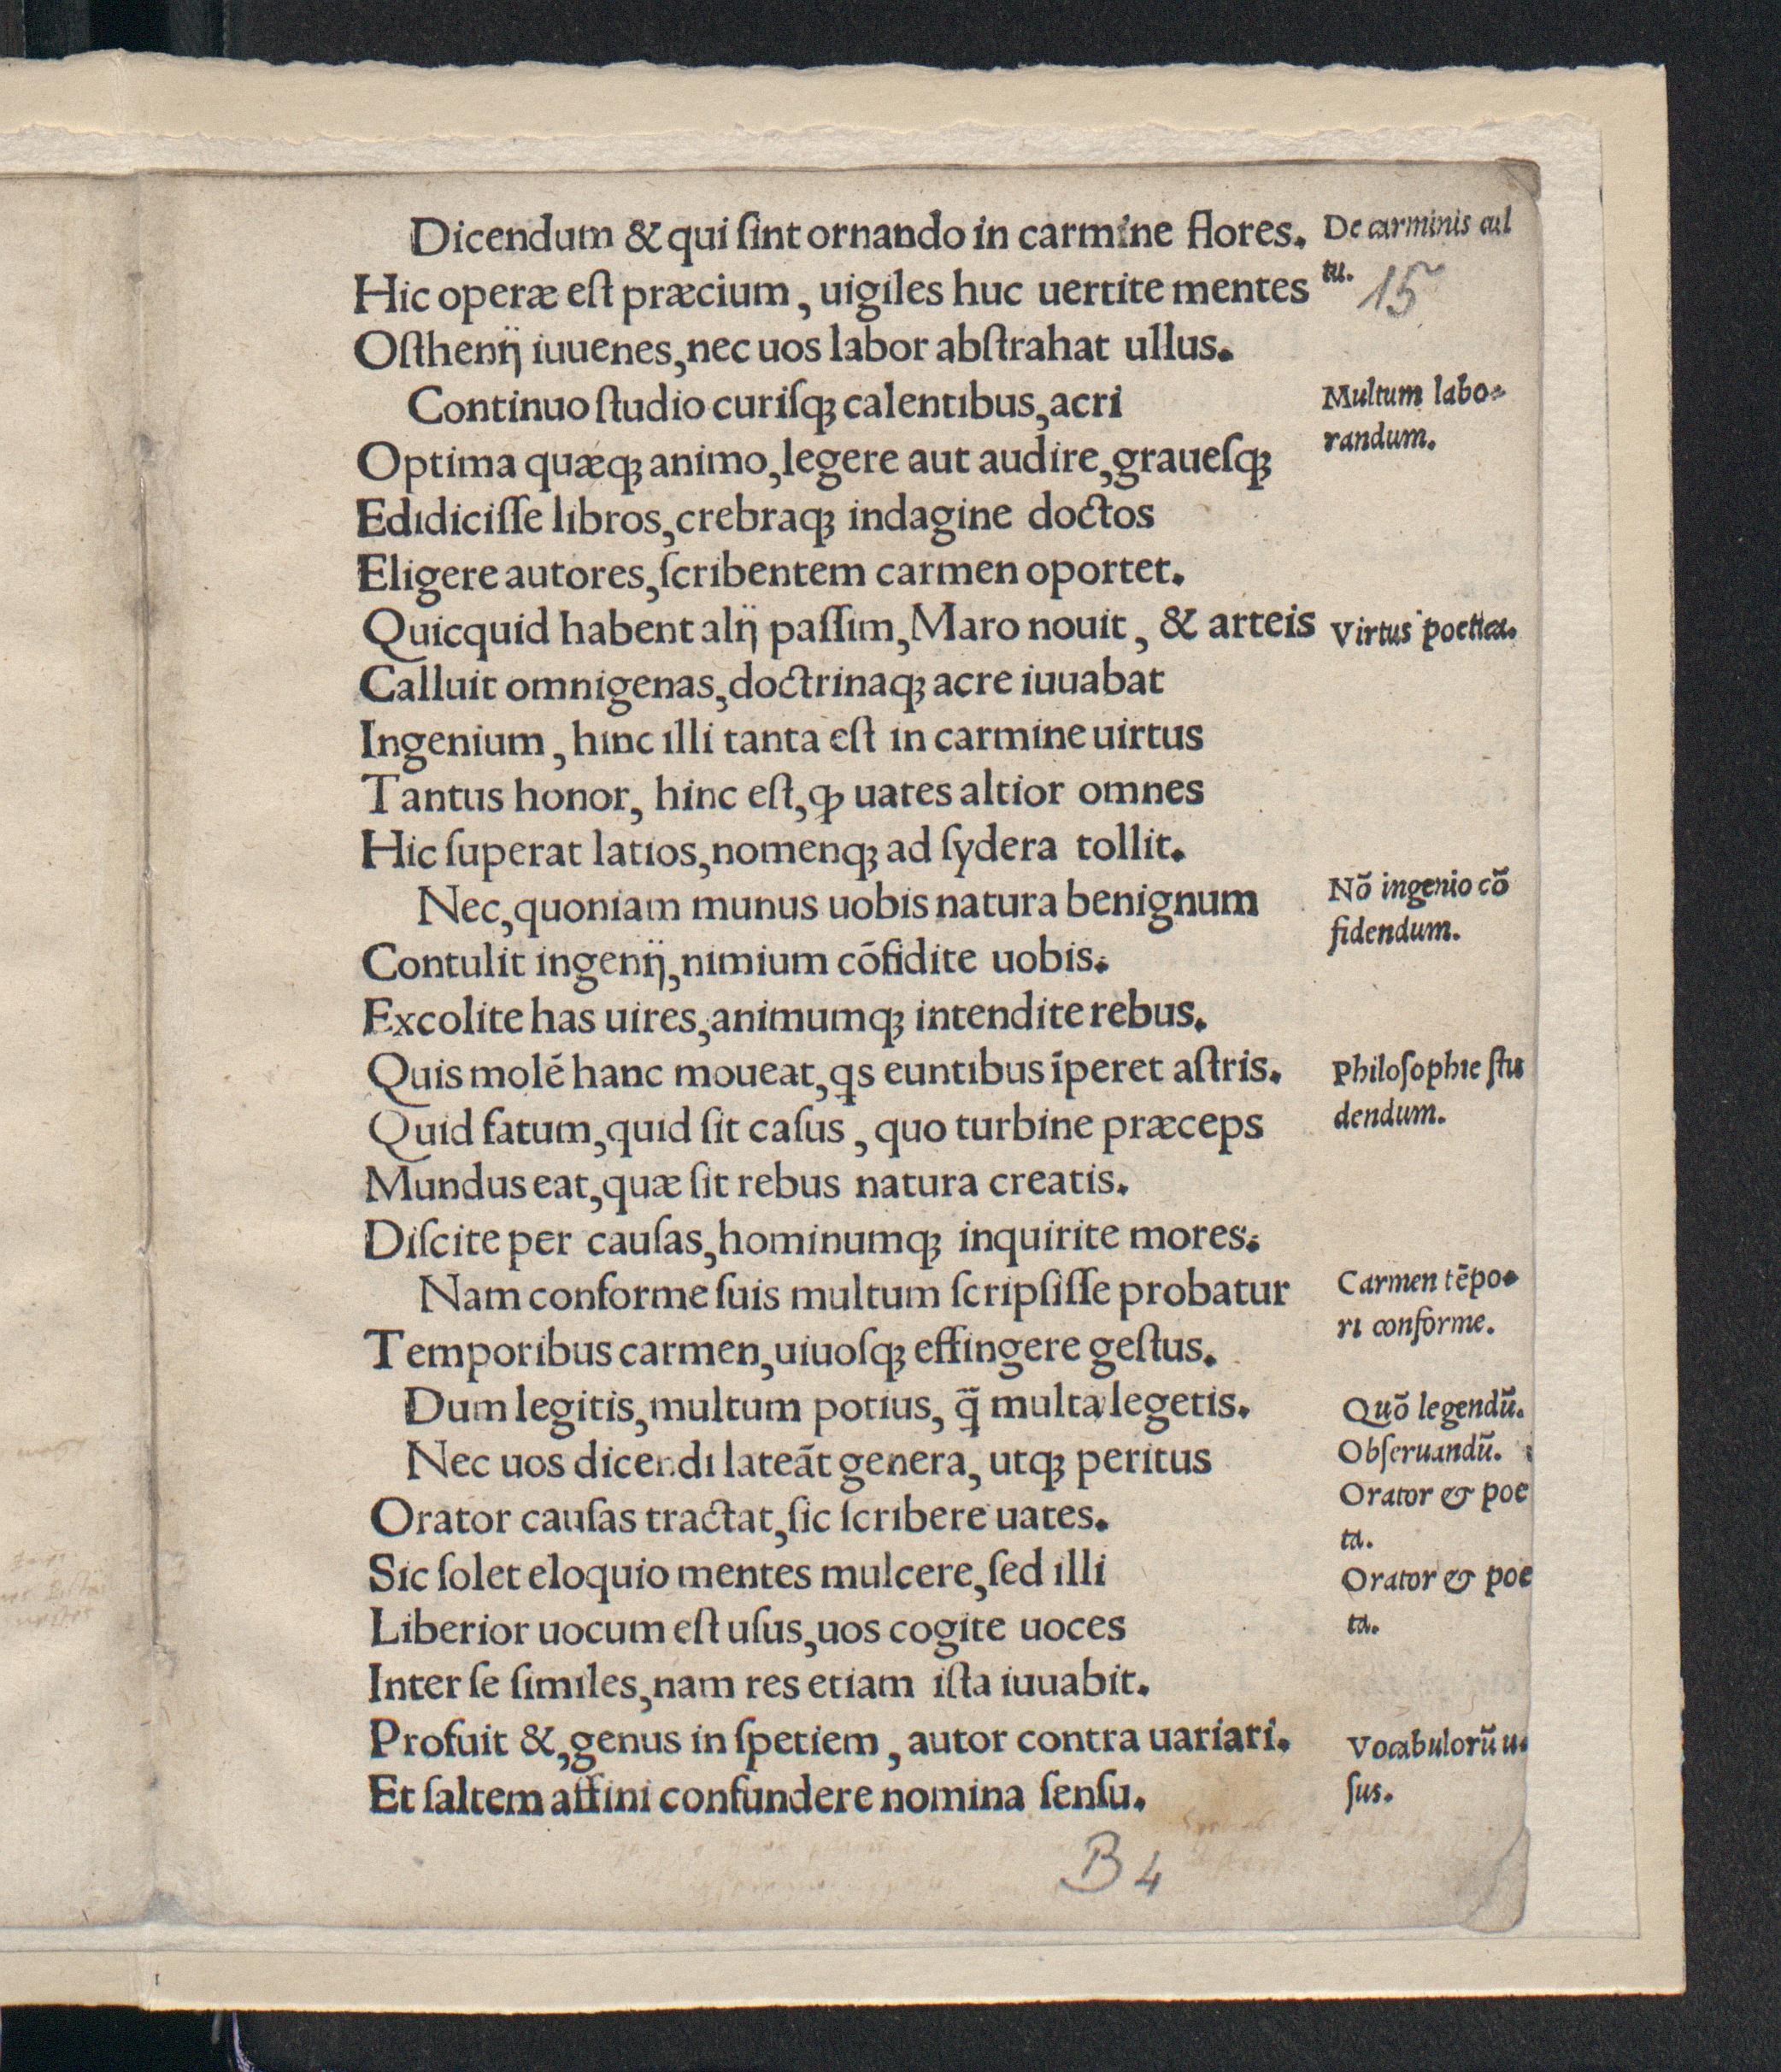 Dicendum & qui ſint ornando in carmine flores.
De carminis cul
tu.
15
Hic operæ eſt præcium, uigiles huc uertite mentes
Oſthenij iuuenes, nec uos labor abſtrahat ullus.
Continuo ſtudio curiſqꝫ calentibus, acri
Multum labo-
randum.
Optima quæqꝫ animo, legere aut audire, graueſqꝫ
Edidiciſſe libros, crebraqꝫ indagine doctos
Eligere autores, ſcribentem carmen oportet.
Quicquid habent alij paſſim, Maro nouit, & arteis
Virtus poetica.
Calluit omnigenas, doctrinaqꝫ acre iuuabat
Ingenium, hinc illi tanta eſt in carmine uirtus
Tantus honor, hinc eſt, ꝙ uates altior omnes
Hic ſuperat latios, nomenqꝫ ad ſydera tollit.
Nec, quoniam munus uobis natura benignum
Nō ingenio cō
fidendum.
Contulit ingenij, nimium cōfidite uobis.
Excolite has uires, animumqꝫ intendite rebus.
Quis molē hanc moueat, qs euntibus īperet aſtris.
Philoſophie ſtu
dendum.
Quid fatum, quid ſit caſus, quo turbine præceps
Mundus eat, quæ ſit rebus natura creatis.
Diſcite per cauſas, hominumqꝫ inquirite mores.
Nam conforme ſuis multum ſcripſiſſe probatur
Carmen tēpo-
ri conforme.
Temporibus carmen, uiuoſqꝫ effingere geſtus.
Dum legitis, multum potius, q̄ multa legetis.
Quō legendū.
Nec uos dicendi lateāt genera, utqꝫ peritus
Obſeruandū.
Orator & poe
ta.
Orator cauſas tractat, ſic ſcribere uates.
Sic ſolet eloquio mentes mulcere, ſed illi
Orator & poe
ta.
Liberior uocum eſt uſus, uos cogite uoces
Inter ſe ſimiles, nam res etiam iſta iuuabit.
Profuit &, genus in ſpetiem, autor contra uariari.
Vocabulorū u-
ſus.
Et ſaltem affini confundere nomina ſenſu.
B4